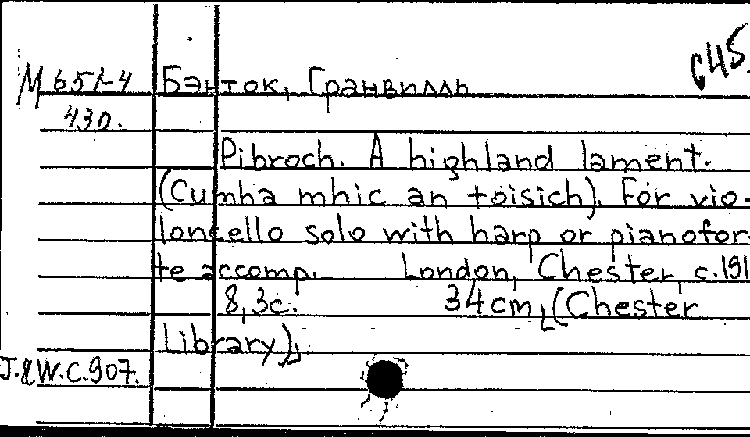 с45.
М 651-4 Бэнток, Гранвилль
430.
Pibroch. A highland lament.
(Cumha mhic an toisich). For vio-
loncello solo with harp or pianofor-
te accomp. London, Chester, c.191
8,3с. 34cm, (Chester
Library).
J.&W.C.907.